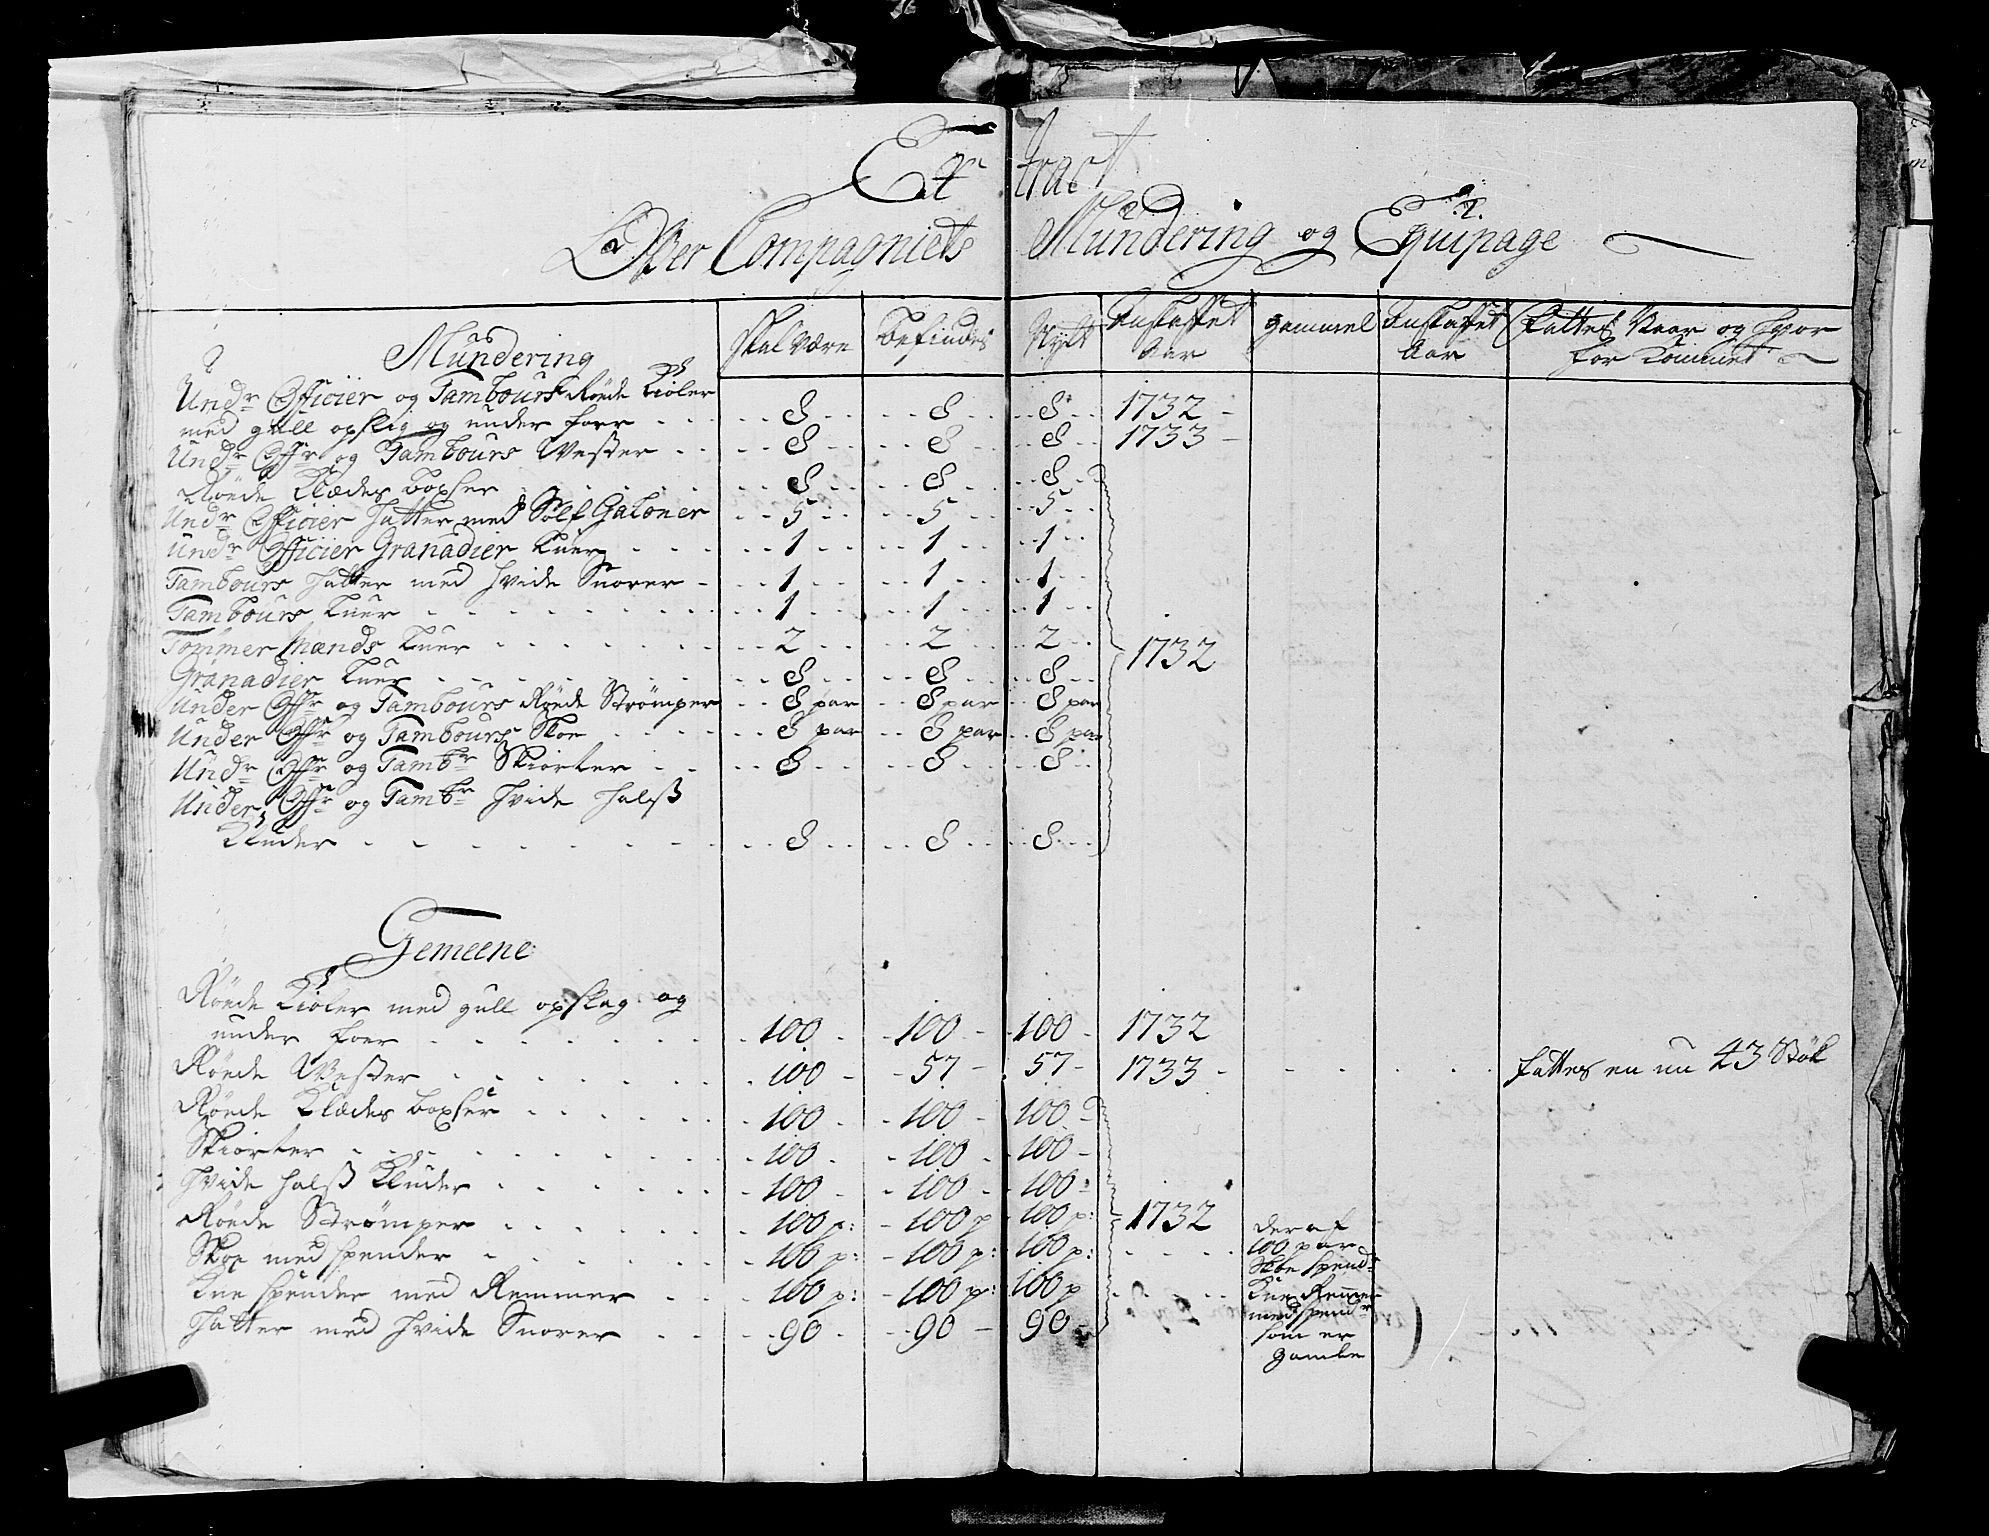 Extract
Over Compagniets Mundering og Equipage
Mundering | Skal Være | befindes | Nytt | Anskaffet Aar | gammel | Anskaffet Aar | Fattes Naar og hvor for Kommet
Undr Officier og Tambours Røede Kioler
med gull opslag og under foer . . 8 . . 8 . . 8 . . 1732 -
Undr Offr og Tambours Wester . . 8 . . 8 . . 8 . . 1733 -
Røede Klædes boxser . . 8 . . 8 . . 8 . .
Undr Officier Hatter med Sølf Galoner . . 5 . . 5 . . 5 . .
Undr Officier Granadier Luer . . 1 . . 1 . . 1 . .
Tambours Hatter med hvide Snorer - . . 1 . . 1 . . 1 . .
Tambours Luer . . 1 . . 1 . . 1 . .
Tømmer Mænds Luer . . 2 . . 2 . . 2 . . 1732
Granadier Luer . . 8 . . 8 . . 8 . .
Under Offr og Tambours Røede Strømper . . 8 par . . 8 par . . 8 par
Under Offr og Tambours Skoe . . 8 par . . 8 par . . 8 par
Undr Offr og Tambr Skiorter . . 8 . . 8 . . 8 . .
Under Offr og Tambr hvide halss
Kluder . . 8 . . 8 . . 8 . .
Gemeene
Røede Kioler med gull opslag og
under foer . . 100 - 100 - 100 - 1732
Røede Wester . . 100 - 57 - 57 - 1733 - . . . . fattes en nu 43 Støk
Røede Klædes boxser . . 100 - 100 - 100 -
Skiorter . . 100 - 100 - 100 -
hvide halss Kluder . . 100 - 100 - 100
Røede Strømper . . 100 p: - 100 p - 100 p: 1732
Skoe med spender . . 100 p: - 100 p: 100 p:
Kne spender med Remmer . . 100 p: - 100 p: 100 p
Hatter med hvide Snorer . . 90 . . 90 - 90
der af
100 par
Skoe spendr
Kne Remmer
med spendr
som er
gamle